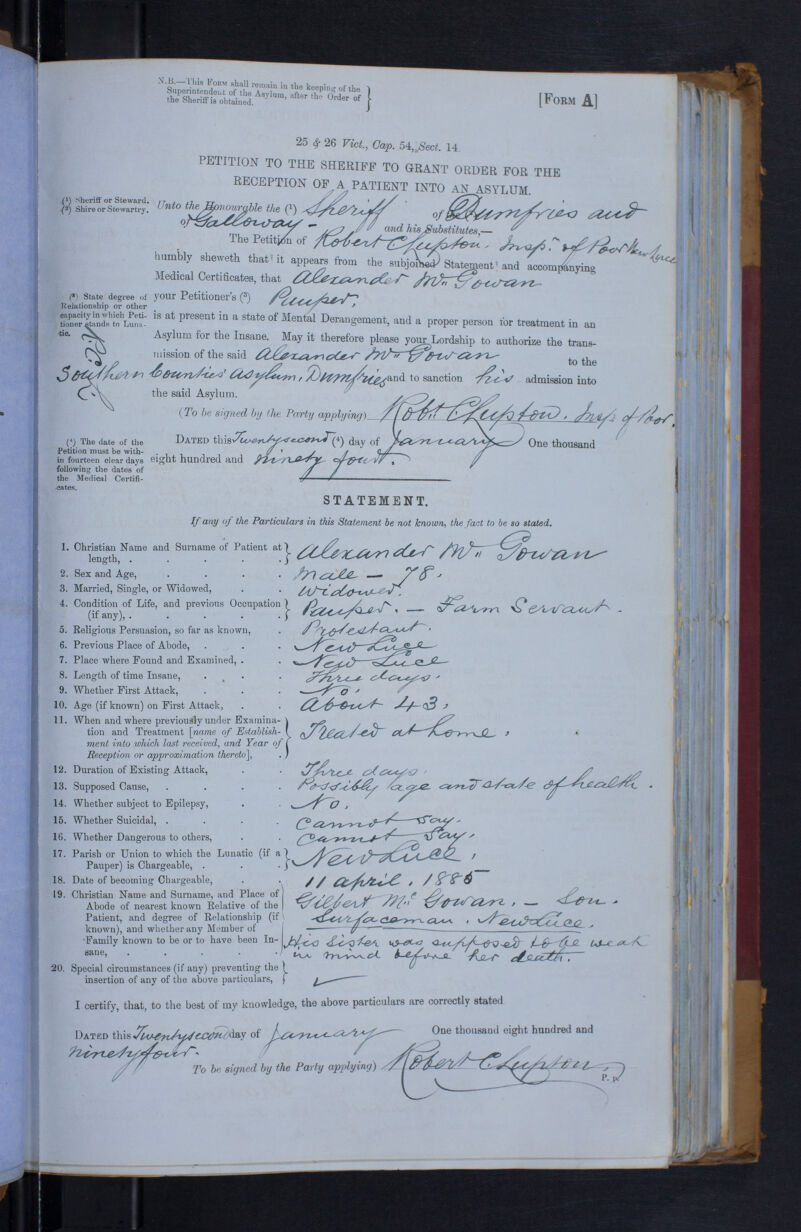 N.B.—This Form shall remain in the keeping of the
Superintendent of the Asylum, after the Order of
the Sheriff is obtained.
[Form A]
25 & 26 Vict., Cap. 54, Sect. 14
PETITION TO THE SHERIFF TO GRANT ORDER FOR THE
RECEPTION OF A PATIENT INTO AN ASYLUM.
(¹) Sheriff or Steward.
(²) Shire or Stewartry.
Unto the Honourable the (¹) Sheriff of Dumfries and
of Galloway - and his Substitutes,—
The Petition of Robert C Lupton. Insp.r of Poor New Luce
humbly sheweth that it appears from the subjoined Statement and accompanying
Medical Certificates, that Alexander Mc Gowan
(³) State degree of
Relationship or other
capacity in which Peti-
tioner stands to Luna-
tic.
your Petitioner's (³) Pauper.
is at present in a state of Mental Derangement, and a proper person for treatment in an
Asylum for the Insane. May it therefore please your Lordship to authorize the trans-
mission of the said Alexander Mc Gowan to the
Southern Counties' Asylum, Dumfries and to sanction his admission into
the said Asylum.
(To be signed by the Party applying) Robt. C Lupton. Insp of Poor.
(⁴) The date of the
Petition must be with-
in fourteen clear days
following the dates of
the Medical Certifi-
cates.
Dated this Twenty second (⁴) day of January One thousand
eight hundred and ninety four.
STATEMENT.
If any of the Particulars in this Statement be not known, the fact to be so stated.
1. Christian Name and Surname of Patient at
length, . Alexander Mc Gowan
2. Sex and Age, Male — 78.
3. Married, Single, or Widowed, Widowed.
4. Condition of Life, and previous Occupation
(if any), . Pauper. — Farm Servant.
5. Religious Persuasion, so far as known, Protestant.
6. Previous Place of Abode, New Luce
7. Place where Found and Examined, New Luce
8. Length of time Insane, Three days.
9. Whether First Attack, No.
10. Age (if known) on First Attack, About 43.
11. When and where previously under Examina-
tion and Treatment [name of Establish-
ment into which last received, and Year of
Reception or approximation thereto], Treated at home.
12. Duration of Existing Attack, Three days.
13. Supposed Cause, Possibly age and state of health.
14. Whether subject to Epilepsy, No.
15. Whether Suicidal, Cannot say.
16. Whether Dangerous to others, Cannot say.
17. Parish or Union to which the Lunatic (if a
Pauper) is Chargeable, New Luce.
18. Date of becoming Chargeable, 11 April. 1885
19. Christian Name and Surname, and Place of
Abode of nearest known Relative of the
Patient, and degree of Relationship (if
known), and whether any Member of
Family known to be or to have been In-
sane, . Gilbert Mc Gowan. — Son.
Surfaceman. New Luce.
His Sister was supposed to be weak
in mind before her death.
20. Special circumstances (if any) preventing the
insertion of any of the above particulars,
I certify, that, to the best of my knowledge, the above particulars are correctly stated
Dated this Twenty second day of January One thousand eight hundred and
ninety four.
To be signed by the Party applying) Robert C Lupton.